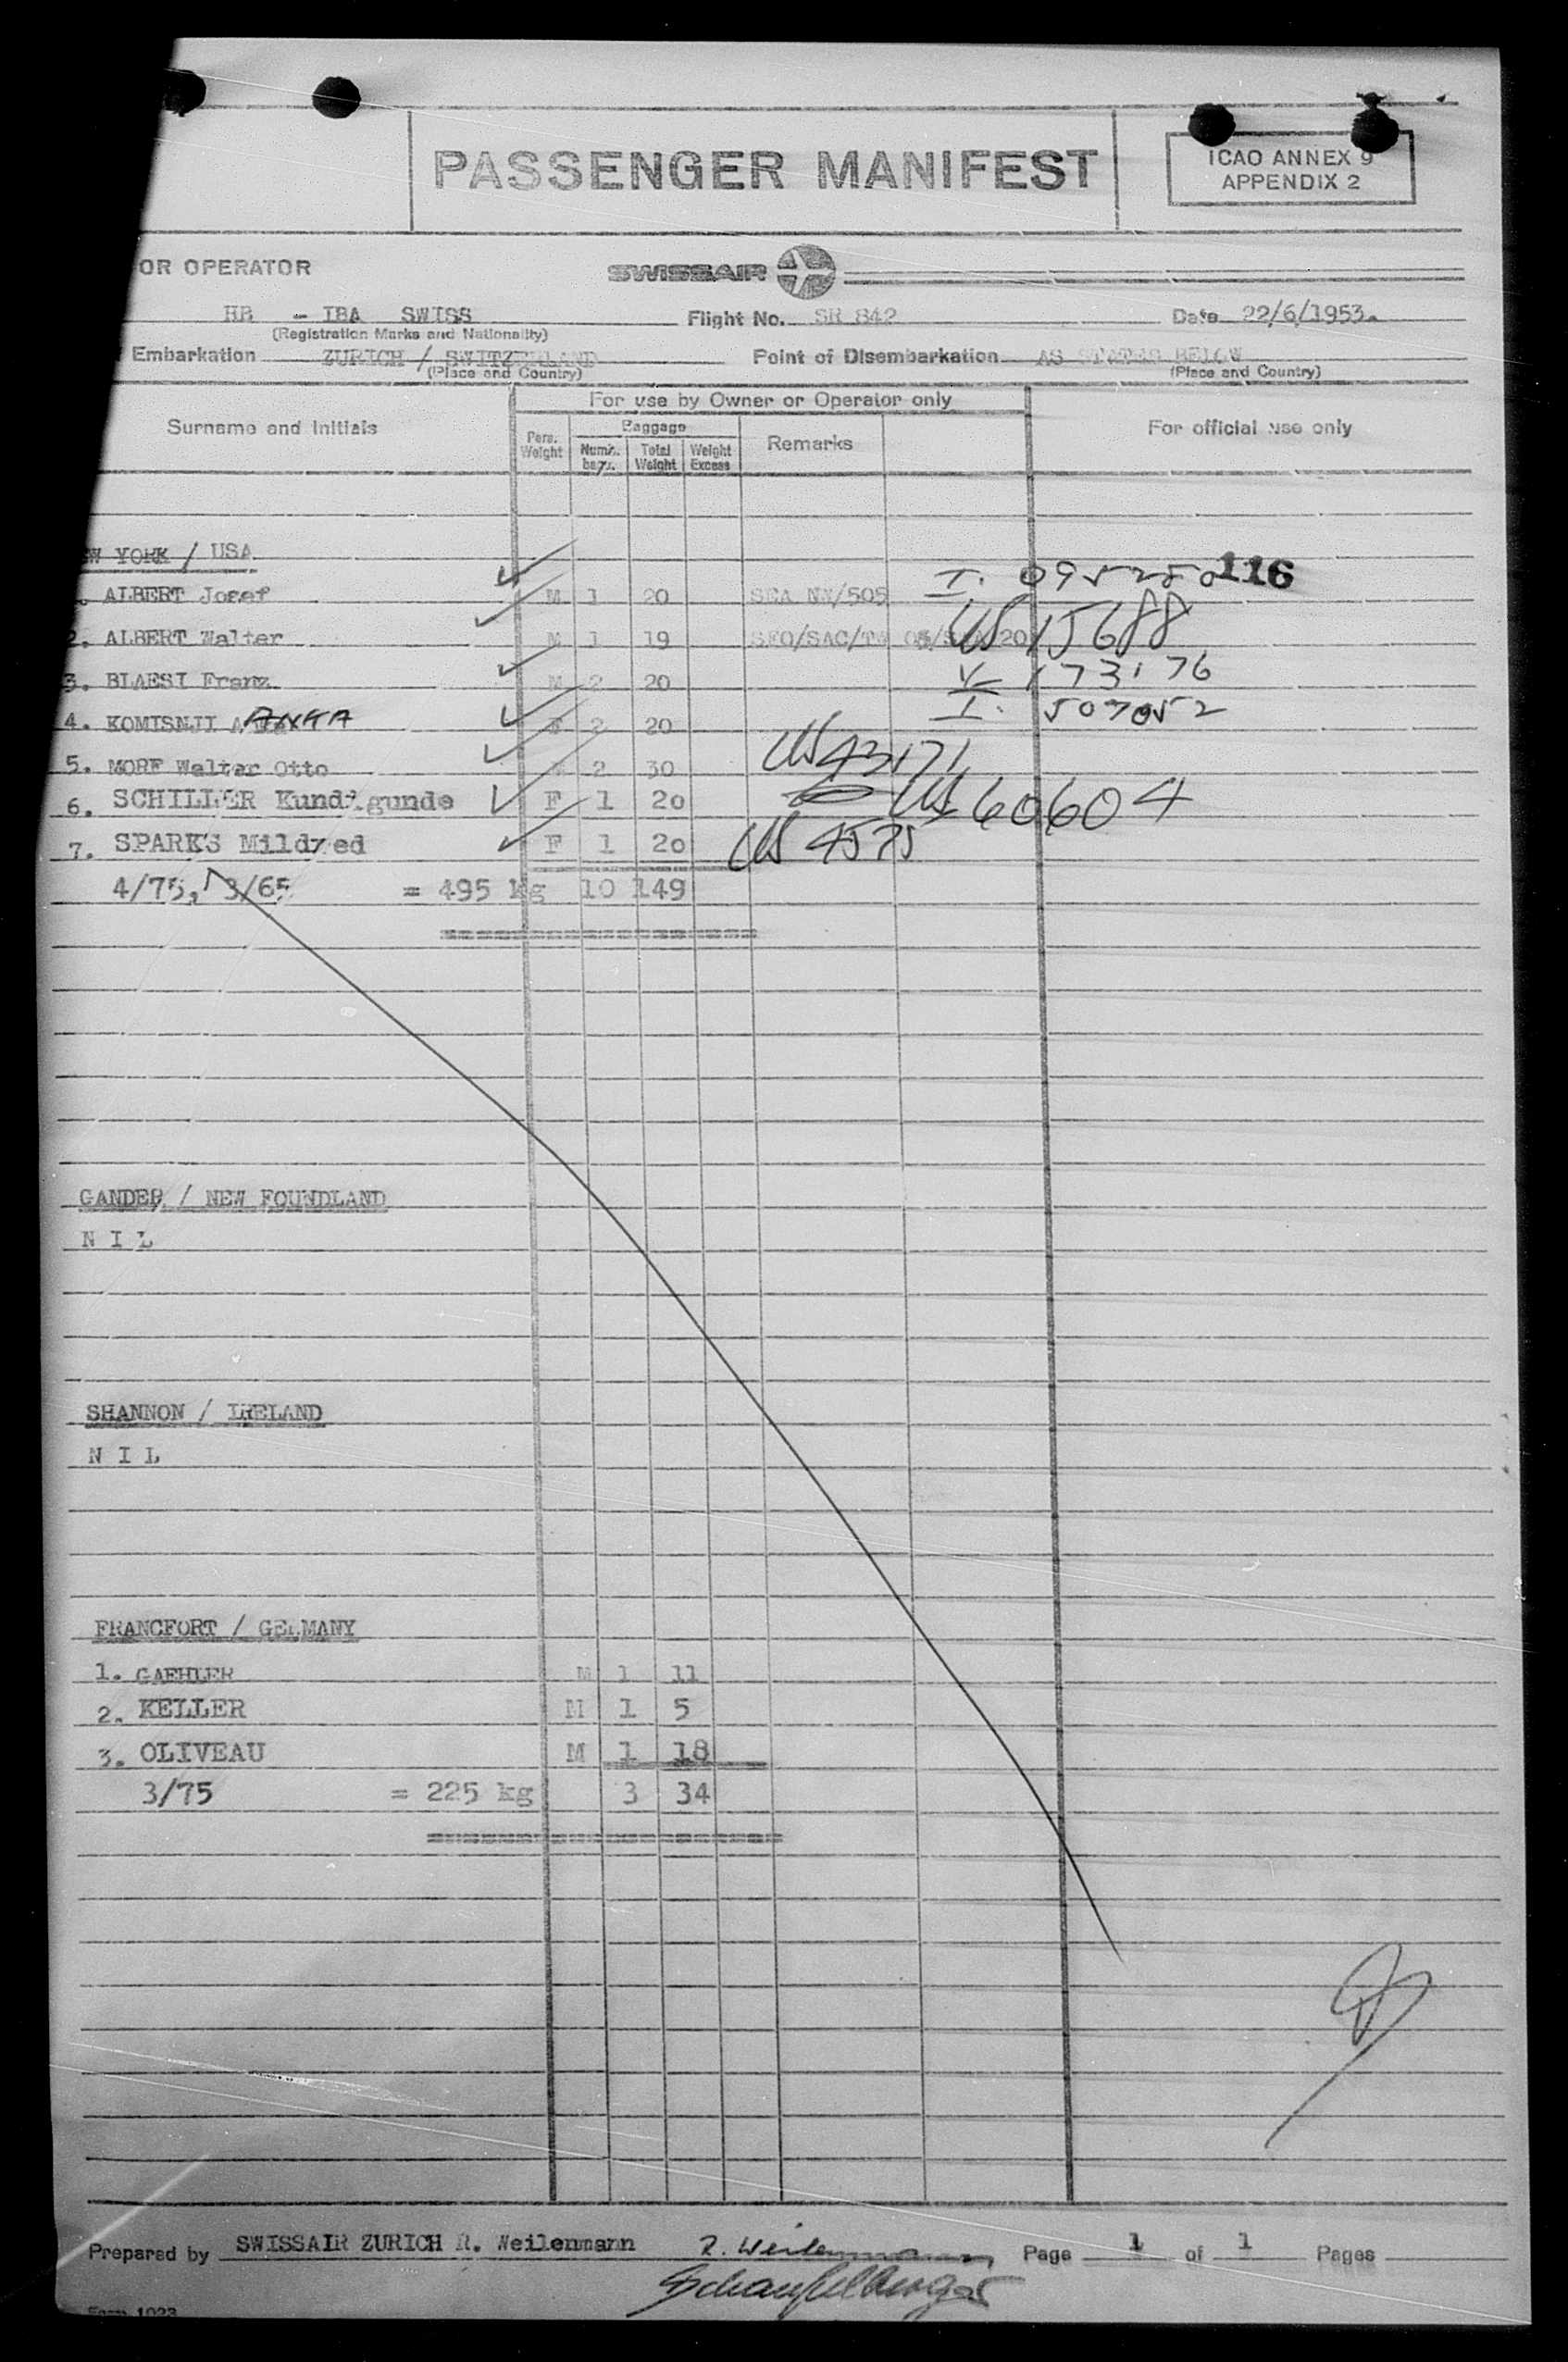 PASSENGER MANIFEST
ICAO ANNEX 9
APPENDIX 2
OR OPERATOR
SWISSAIR
HB - IBA SWISS Flight No. SR 842 Date 22/6/1953.
(Registration Marks and Nationality)
Embarkation ZURICH / SWITZERLAND Point of Disembarkation AS STATED BELOW
(Place and Country) (Place and Country)
For use by Owner or Operator only
Surname and Initials Pers. Weight Baggage Remarks For official use only
Numb. bags. Total Weight Weight Excess
W YORK / USA
ALBERT Josef M 1 20 SEA NW/505 I. 095280 116
2. ALBERT Walter M 1 19 SFO/SAC/TW 20 US 15688
3. BLAESI Franz M 2 20 V 173176
4. KOMISNJI ANKA F 2 20 I. 507052
5. MORF Walter Otto M 2 30 US 43171
6. SCHILLER Kundigunde F 1 20 US 60604
7. SPARKS Mildred F 1 20 US 4575
4/75, 3/65 = 495 kg 10 149
GANDER / NEW FOUNDLAND
N I L
SHANNON / IRELAND
N I L
FRANCFORT / GERMANY
1. GAEHLER M 1 11
2. KELLER M 1 5
3. OLIVEAU M 1 18
3/75 = 225 kg 3 34
Prepared by SWISSAIR ZURICH R. Weilenmann R. Weilenmann Page 1 of 1 Pages
Schaufelberger
Form 1023